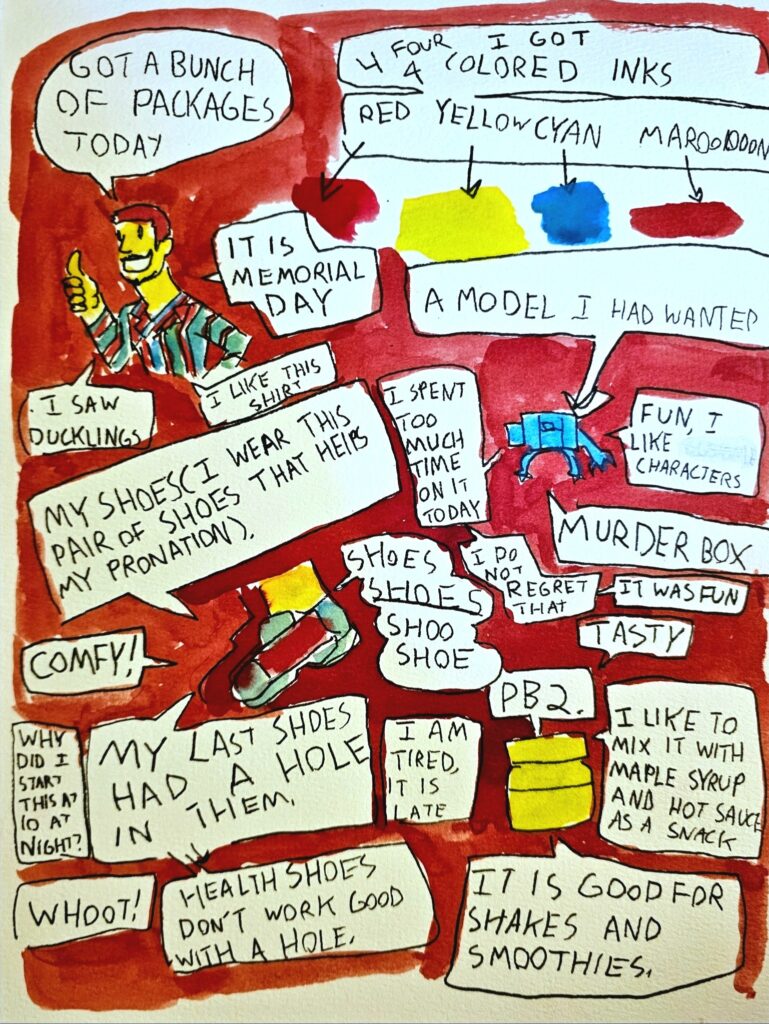 GOT A BUNCH
OF PACKAGES
TODAY
I GOT
4 FOUR
4 COLORED INKS
RED YELLOW CYAN MAROOODOON
IT IS
MEMORIAL
DAY
A MODEL I HAD WANTED
I LIKE THIS
SHIRT
I SAW
DUCKLINGS
I SPENT
TOO
MUCH
TIME
ON IT
TODAY
FUN, I
LIKE
CHARACTERS
MY SHOES(I WEAR THIS
PAIR OF SHOES THAT HELPS
MY PRONATION).
MURDER BOX
I DO
NOT
REGRET
THAT
IT WAS FUN
SHOES
SHOES
SHOO
SHOE
COMFY!
TASTY
PB2.
I LIKE TO
MIX IT WITH
MAPLE SYRUP
AND HOT SAUCE
AS A SNACK
WHY
DID I
START
THIS AT
10 AT
NIGHT?
MY LAST SHOES
HAD A HOLE
IN THEM.
I AM
TIRED,
IT IS
LATE
WHOOT!
HEALTH SHOES
DON'T WORK GOOD
WITH A HOLE.
IT IS GOOD FOR
SHAKES AND
SMOOTHIES.